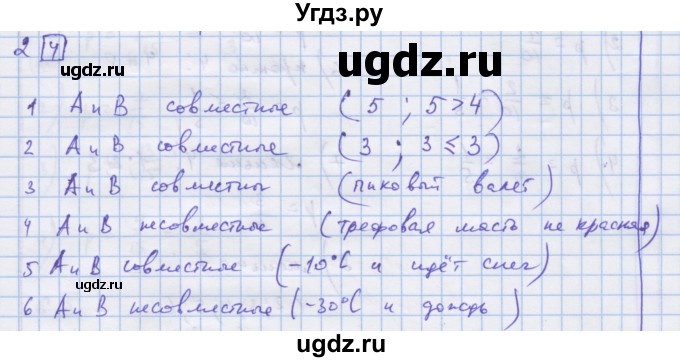 Угдз.ру
2 4
ugdz.ru
ugdz.ru
1 А и В совместные (5 ; 5 > 4)
2 А и В совместные (3 ; 3 ≤ 3)
3 А и В совместны (пиковый валет)
4 А и В несовместные (трефовая масть не красная)
5 А и В совместные (-10°С и идёт снег)
ugdz.ru
6 А и В несовместные (-30°С и дождь)
ugdz.ru